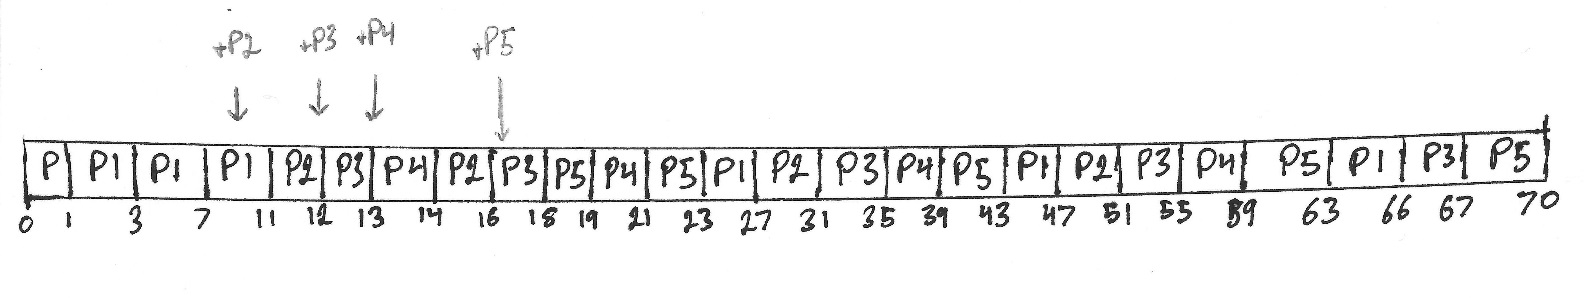 +P2 +P3 +P4 +P5
P P1 P1 P1 P2 P3 P4 P2 P3 P5 P4 P5 P1 P2 P3 P4 P5 P1 P2 P3 P4 P5 P1 P3 P5
0 1 3 7 11 12 13 14 16 18 19 21 23 27 31 35 39 43 47 51 55 59 63 66 67 70